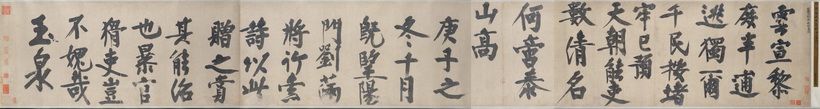 雲宣黎
庶半逋
逃獨爾
千民按堵
牢已預
天朝能吏
數清名
何啻泰
山高
庚子之
冬十月
旣望陽
門劉滿
將行索
詩以此
贈之賞
其能治
也暴官
猾吏豈
不愧哉
玉泉